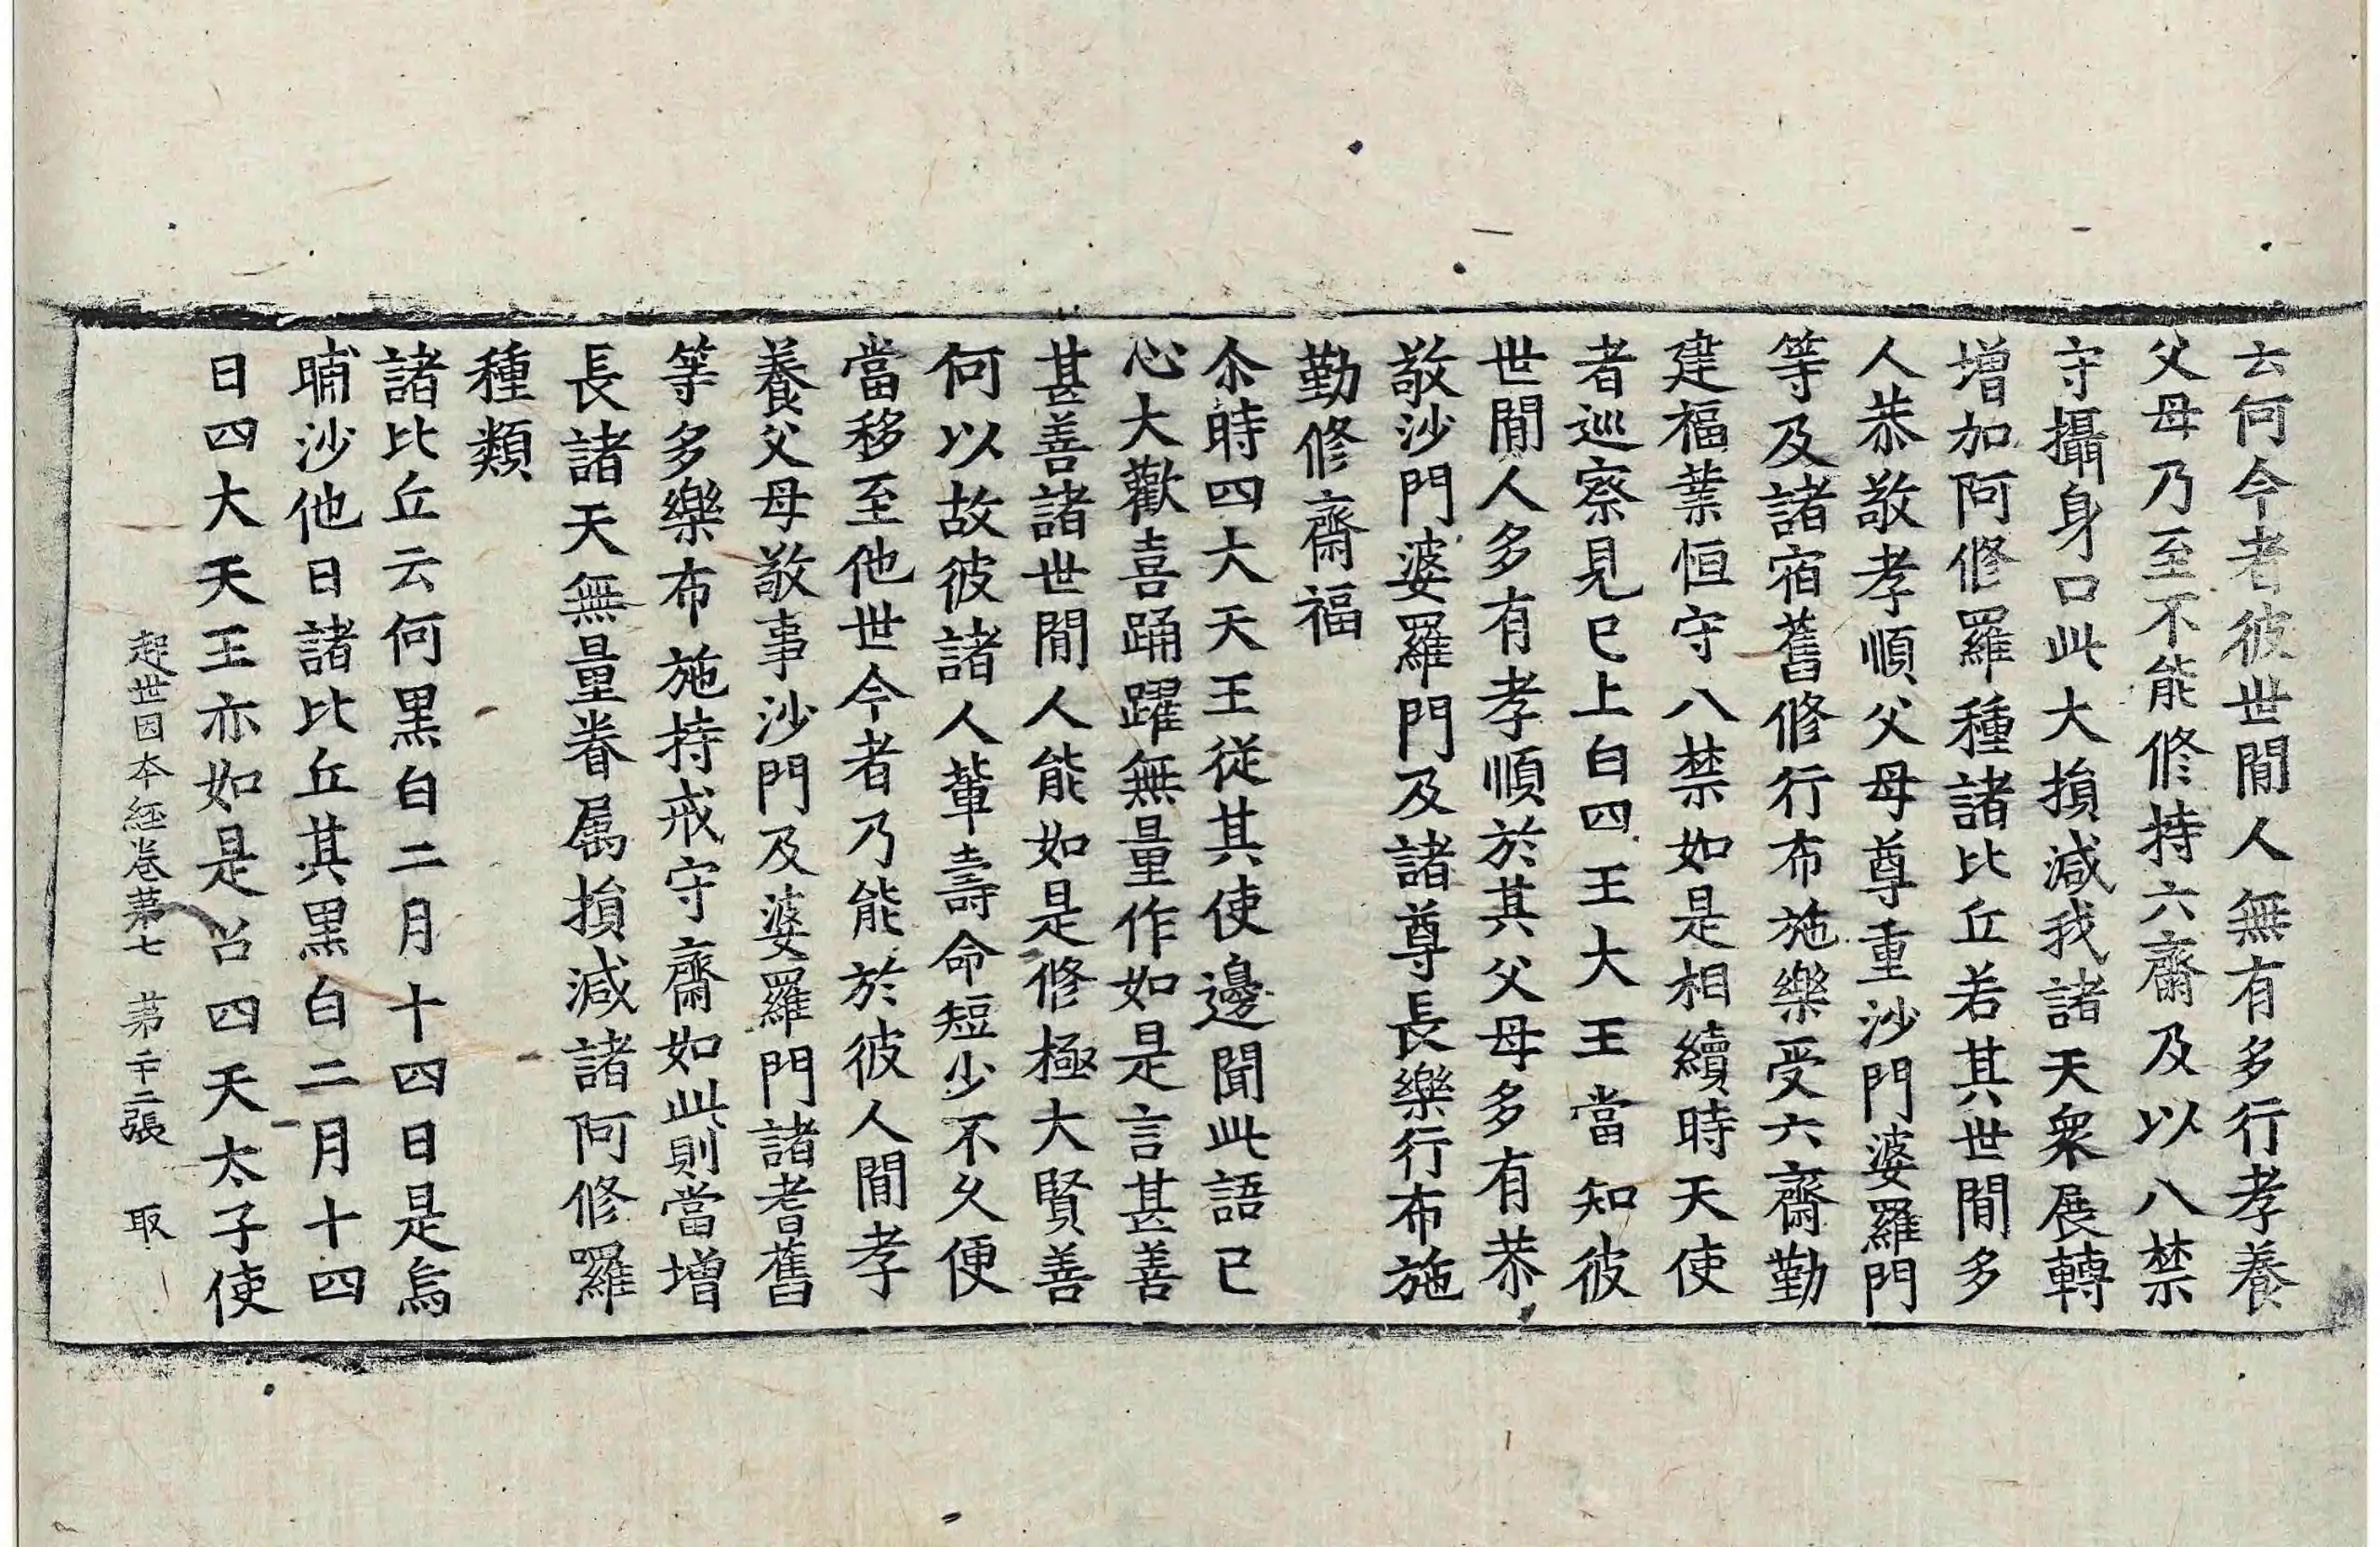 云何今者彼世間人無有多行孝養
父母乃至不能修持六齋及以八禁
守攝身口此大損減我諸天衆展轉
增加阿修羅種諸比丘若其世間多
人恭敬孝順父母尊重沙門婆羅門
等及諸宿舊修行布施樂受六齋勤
建福業恒守八禁如是相續時天使
者巡察見已上白四王大王當知彼
世間人多有孝順於其父母多有恭
敬沙門婆羅門及諸尊長樂行布施
勤修齋福
尒時四大天王從其使邊聞此語已
心大歡喜踊躍無量作如是言甚善
甚善諸世間人能如是修極大賢善
何以故彼諸人輩壽命短少不久便
當移至他世今者乃能於彼人間孝
養父母敬事沙門及婆羅門諸耆舊
等多樂布施持戒守齋如此則當增
長諸天無量眷属損減諸阿修羅
種類
諸比丘云何黑白二月十四日是烏
晡沙他日諸比丘其黑白二月十四
日四大天王亦如是召四天太子使
起世因本經卷苐七 苐二十二張 取